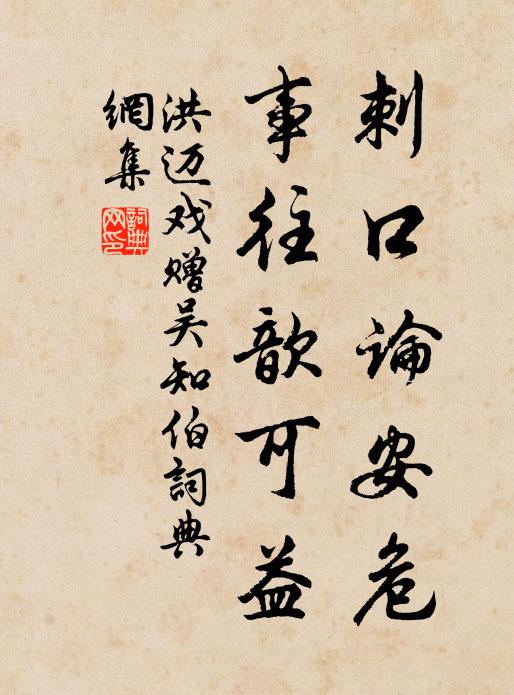 刺口論安危
事往歆可益
洪迈戏赠吴知伯詞典
網集
詞典
网印